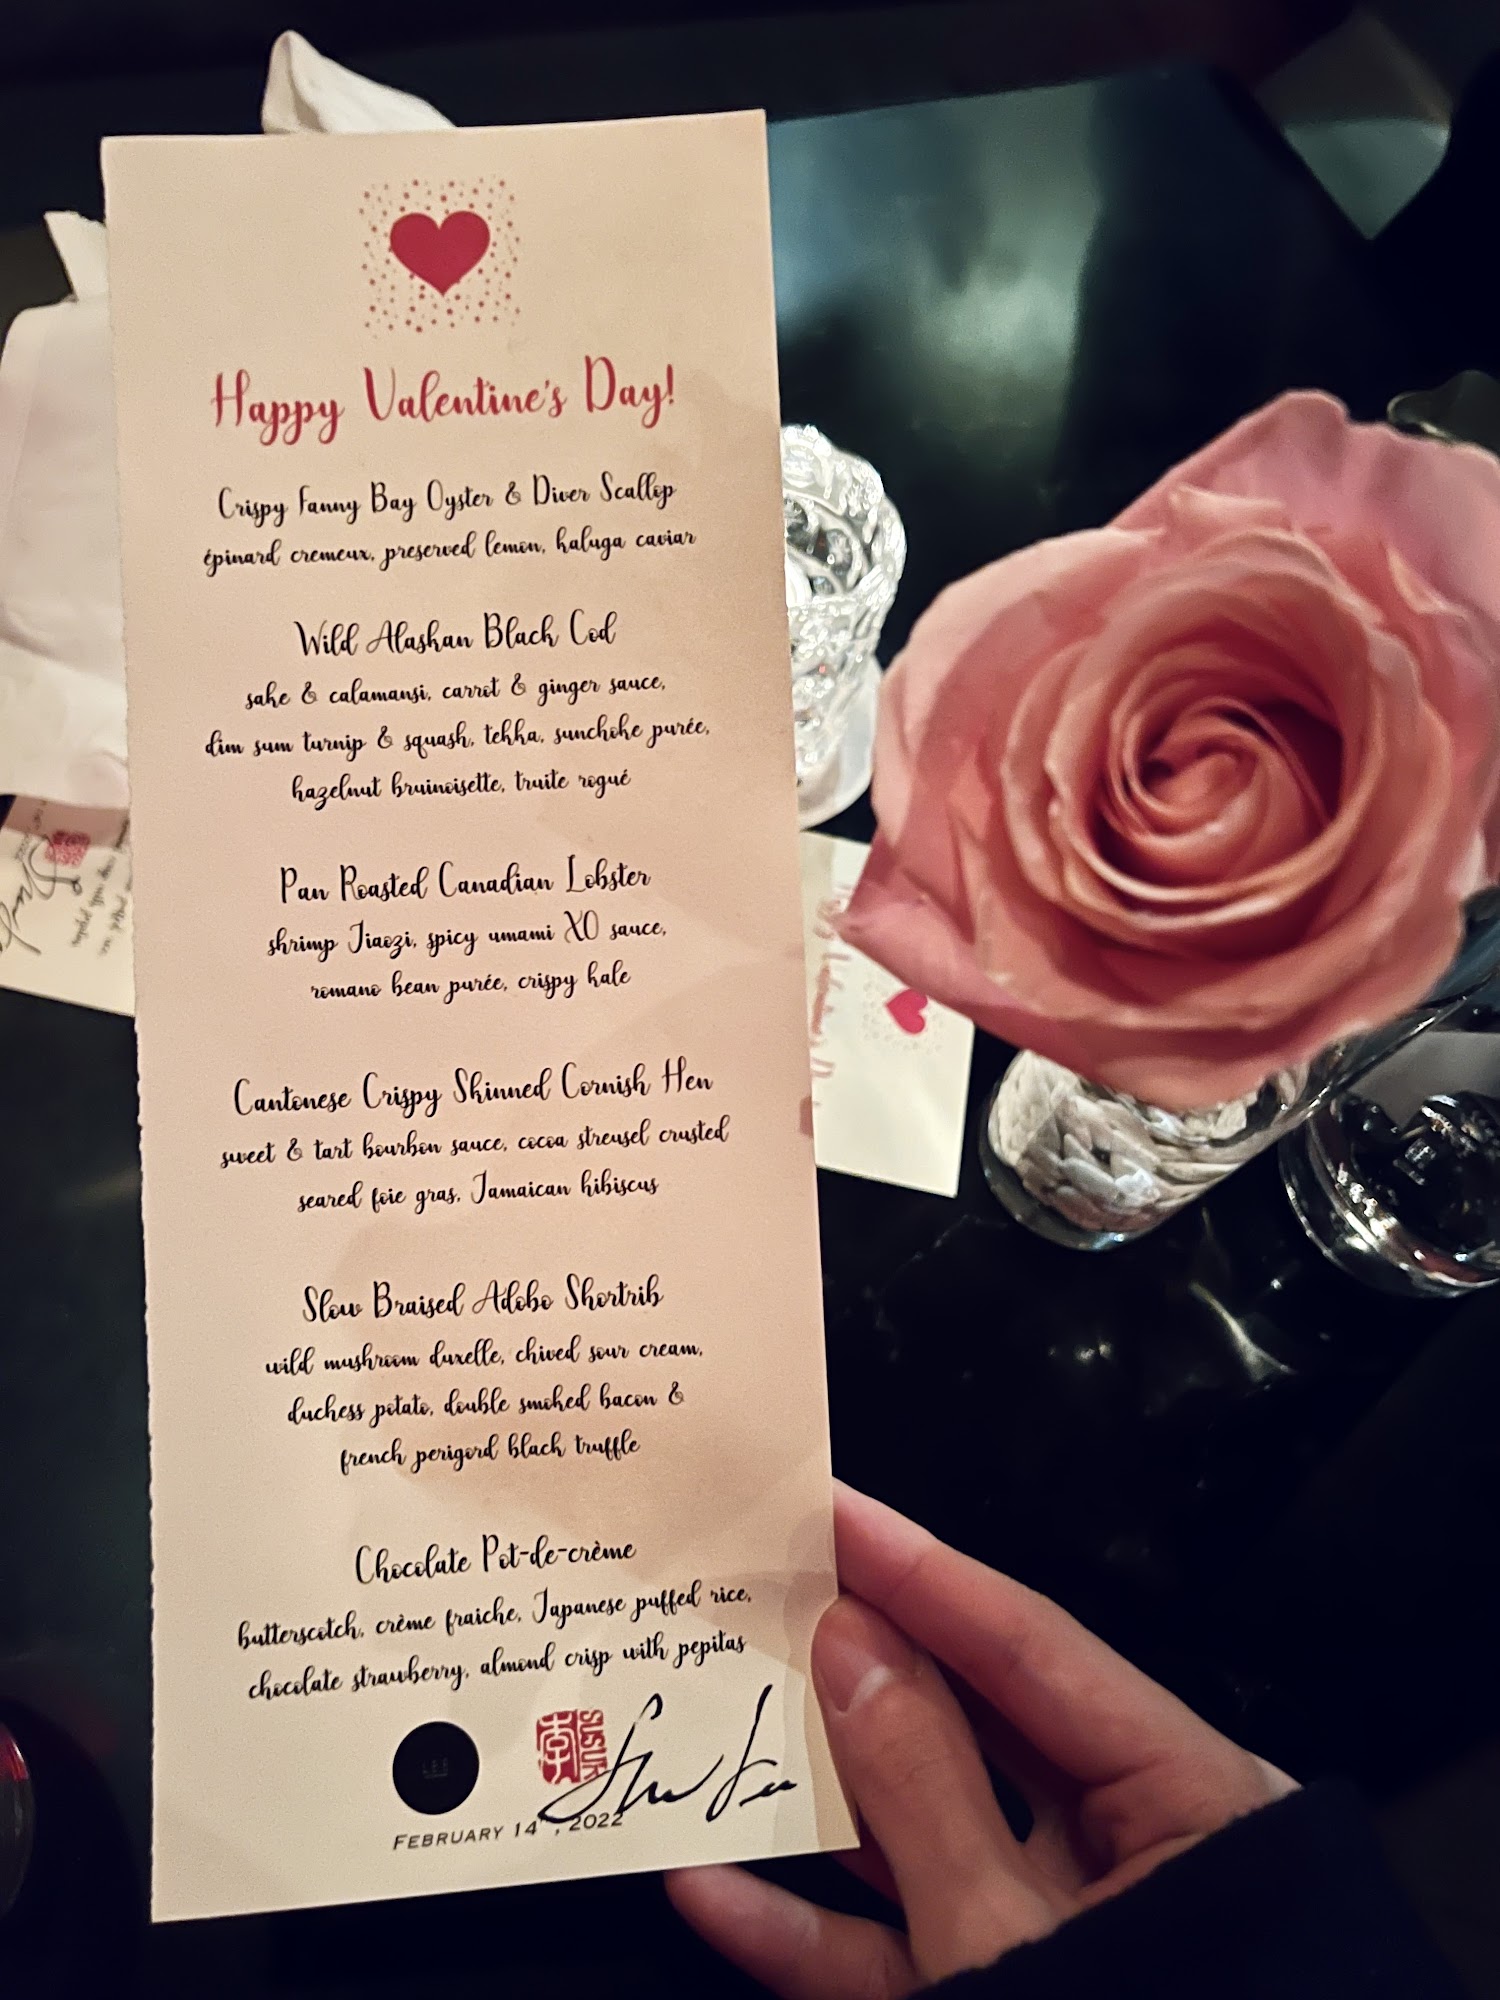 Happy Valentine's Day!
Crispy Fanny Bay Oyster & Diver Scallop
épinard cremeux, preserved lemon, kaluga caviar
Wild Alaskan Black Cod
sake & calamansi, carrot & ginger sauce,
dim sum turnip & squash, tekka, sunchoke purée,
hazelnut bruinoisette, truite rogué
Pan Roasted Canadian Lobster
shrimp Jiaozi, spicy umami XO sauce,
romano bean purée, crispy kale
Cantonese Crispy Skinned Cornish Hen
sweet & tart bourbon sauce, cocoa streusel crusted
seared foie gras, Jamaican hibiscus
Slow Braised Adobo Shortrib
wild mushroom duxelle, chived sour cream,
duchess potato, double smoked bacon &
french perigord black truffle
Chocolate Pot-de-crème
butterscotch, crème fraiche, Japanese puffed rice,
chocolate strawberry, almond crisp with pepitas
LEE
SUSUR
February 14, 2022